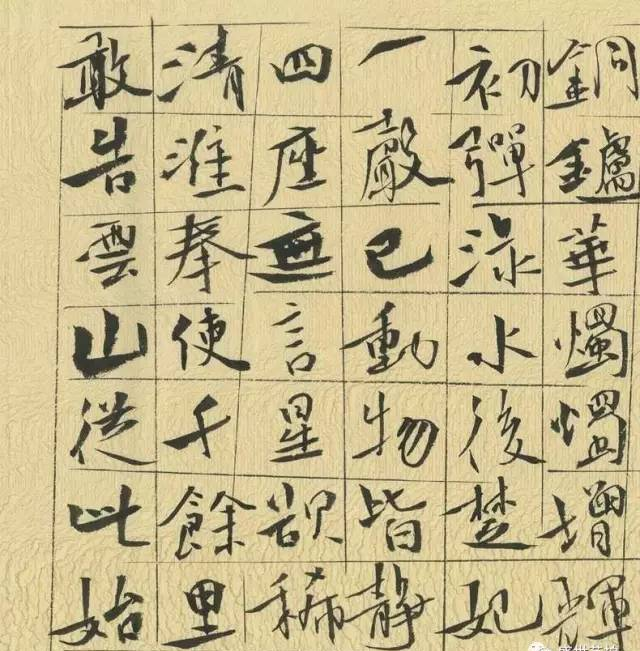 銅鑪華燭燭增輝
初彈渌水後楚妃
一聲已動物皆靜
四座無言星欲稀
清淮奉使千餘里
敢告雲山從此始